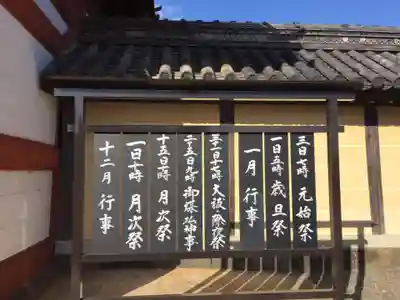 三日七時 元始祭
一日五時 歳旦祭
一月 行事
三十一日十七時 大祓 除夜祭
二十五日九時 御煤払神事
十五日十時 月次祭
一日十時 月次祭
十二月 行事